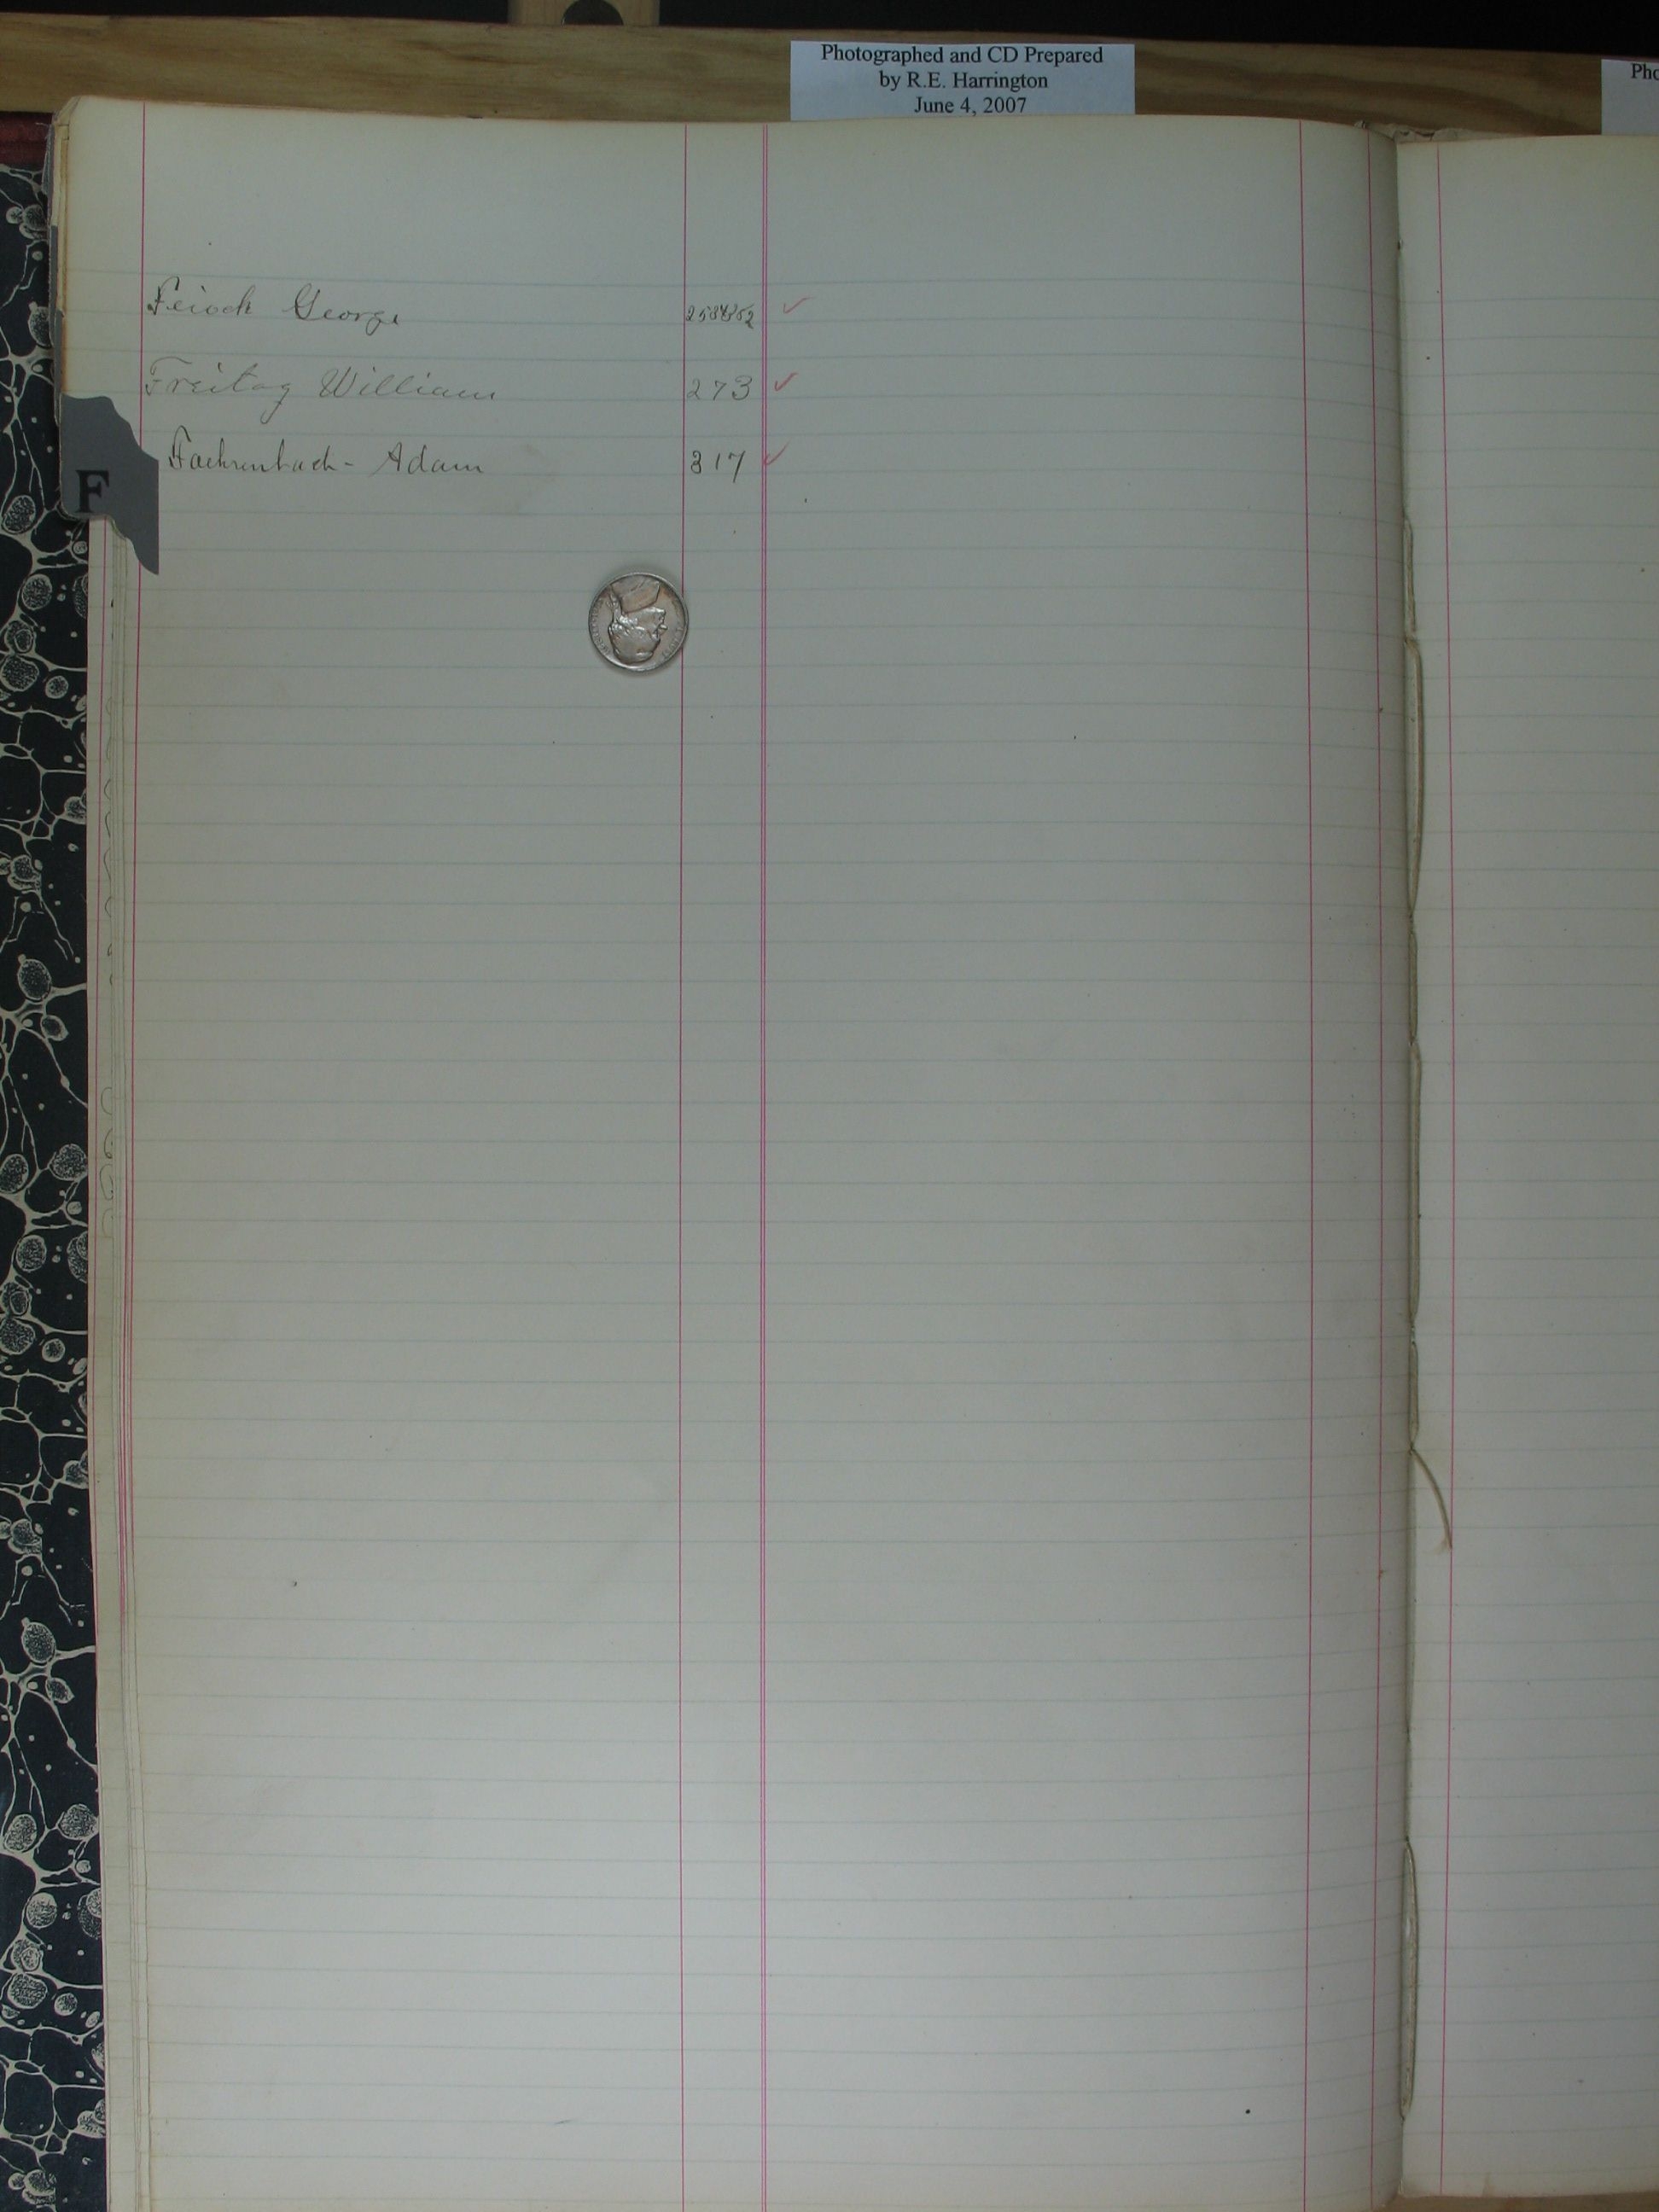 Photographed and CD Prepared
by R.E. Harrington
June 4, 2007
Pho
Feioch George ✓
Freitag William 273 ✓
Fachrenbach - Adam 317 ✓
F